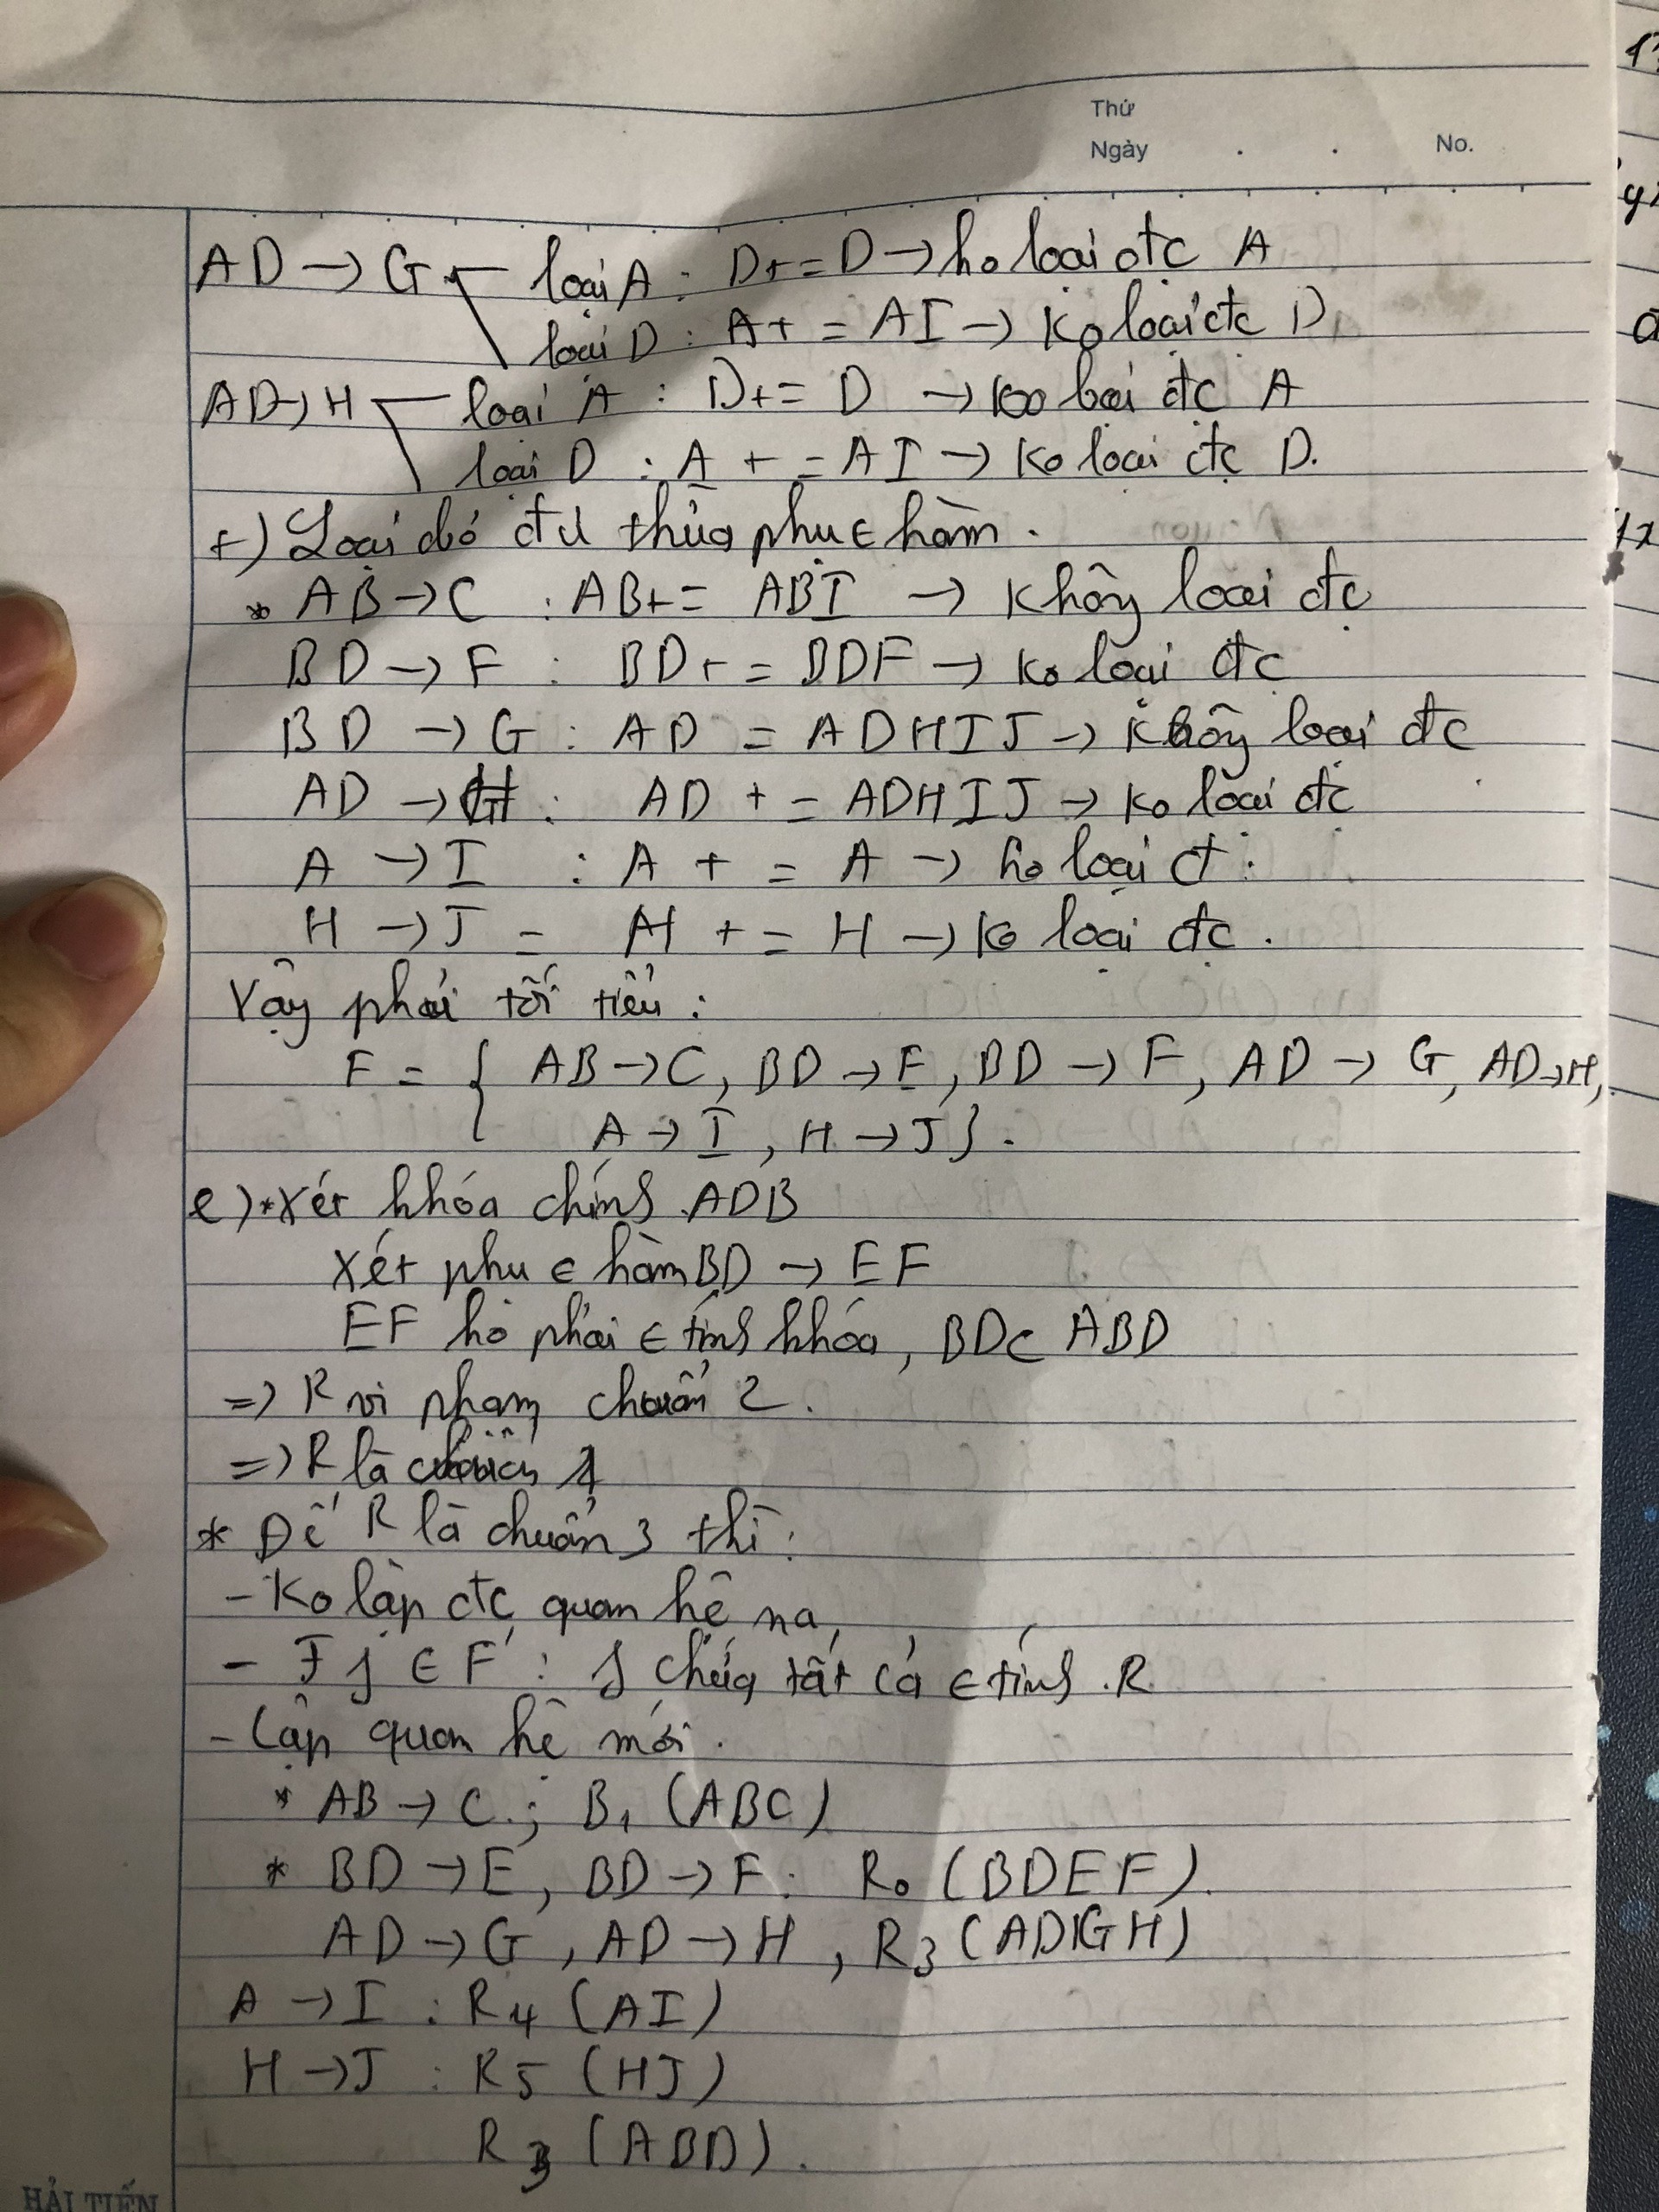 Thứ
Ngày . . No.
AD → G loại A : D+ = D → ko loại đc A
loại D : A+ = AI → Ko loại đc D
AD → H loại A : D+ = D → ko loại đc A
loại D : A + = AI → Ko loại đc D.
+) Loại bỏ dư thừa phụ ∈ hàm.
* AB → C : AB+ = ABI → Không loại đc
BD → F : BD+ = BDF → Ko loại đc
BD → G : AD = ADHIJ → Không loại đc
AD → H : AD + = ADHIJ → Ko loại đc
A → I : A + = A → ko loại đ.
H → J = H + = H → Ko loại đc.
Vậy phải tối tiểu :
F = { AB → C, BD → E, BD → F, AD → G, AD → H,
A → I, H → J }.
e) * Xét khóa chính ADB
Xét phụ ∈ hàm BD → EF
EF ko phải ∈ tính khóa, BD ⊂ ABD
=> R vi phạm chuẩn 2.
=> R là chuẩn 1
* Để R là chuẩn 3 thì :
- Ko lập đc quan hệ
- ∃ f ∈ F : f chứa tất cả ∈ tính R
- Lập quan hệ mới.
* AB → C ; B1 (ABC)
* BD → E, BD → F : R0 (BDEF).
AD → G, AD → H, R3 (ADGH)
A → I : R4 (AI)
H → J : R5 (HJ)
R3 (ABD).
HẢI TIẾN